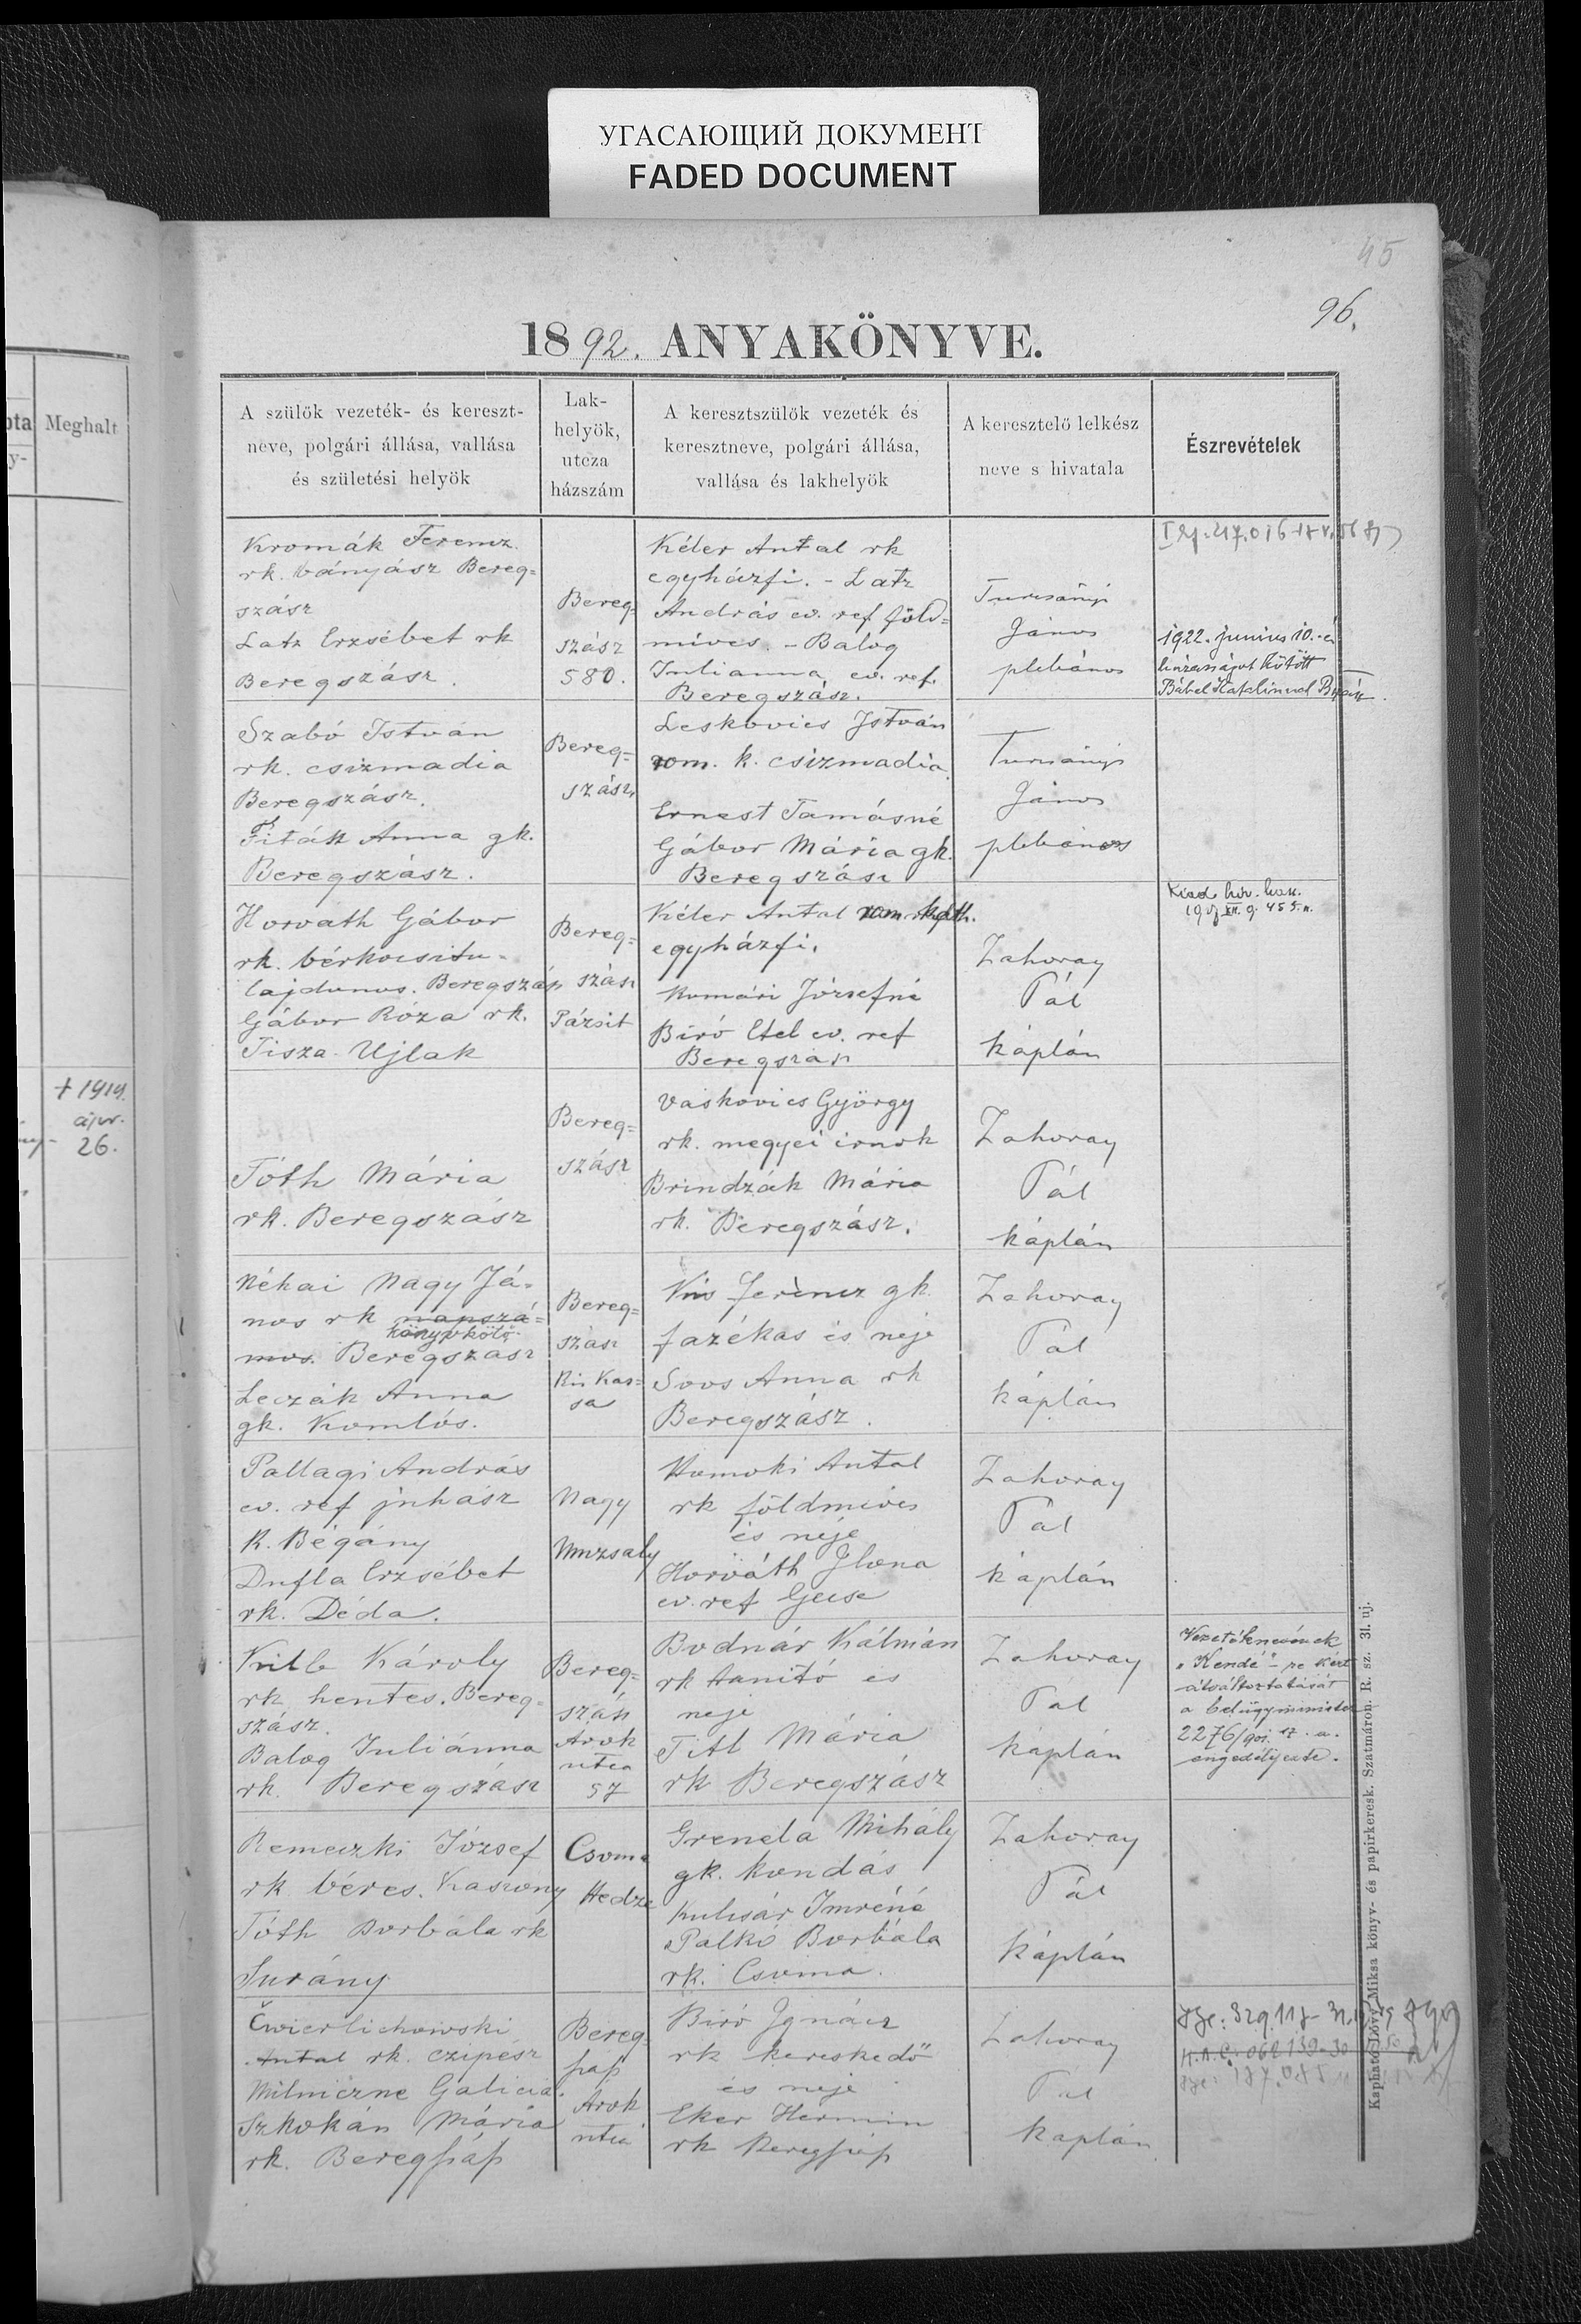 УГАСАЮЩИЙ ДОКУМЕНТ
FADED DOCUMENT
45
96.
1892. ANYAKÖNYVE.
ota
Meghalt
y-
A szülők vezeték- és kereszt-
neve, polgári állása, vallása
és születési helyök
Lak-
helyök,
utcza
házszám
A keresztszülök vezeték és
keresztneve, polgári állása,
vallása és lakhelyök
A keresztelő lelkész
neve s hivatala
Észrevételek
Kromák Ferencz
rk. bányász Bereg=
szász
Latz Erzsébet rk
Beregszász.
Bereg=
szász
580.
Kéler Antal rk
egyházfi. - Latz
András ev. ref föld=
míves. - Balog
Julianna ev. ref.
Beregszász.
Turcsányi
János
plebános
1922. junius 10.-én
házasságot kötött
Bábel Katalinnal
Szabó István
rk. csizmadia
Beregszász.
Titák Anna gk.
Beregszász.
Bereg=
szász
Leskovics István
rom. k. csizmadia
Ernest Tamásné
Gábor Mária gk.
Beregszász
Turcsányi
János
plebános
Horvath Gábor
rk. bérkocsitu-
lajdonos. Beregszász
Gábor Róza rk.
Tisza-Ujlak
Bereg=
szász
Pázsit
Kéler Antal rom. kath.
egyházfi.
Komári Józsefné
Biró Etel ev. ref
Beregszász
Zahoray
Pál
káplán
+ 1919.
ájw.
26.
Tóth Mária
rk. Beregszász
Bereg=
szász
Vaskovics György
rk. megyei irnok
Brindzák Mária
rk. Beregszász.
Zahoray
Pál
káplán
Néhai Nagy Já-
nos rk napszá=
könyvkötő
mos. Beregszász
Leczák Anna
gk. Komlós.
Bereg=
szász
Kis Kas=
sa
Kis Ferencz gk.
fazékas és neje
Soos Anna rk
Beregszász.
Zahoray
Pál
káplán
Pallagi András
ev. ref juhász
K. Bégány
Dufla Erzsébet
rk. Déda.
Nagy
Muzsaly
Homoki Antal
rk földmives
és neje
Horváth Ilona
ev. ref Gecse
Zahoray
Pál
káplán
Károly
rk hentes. Bereg=
szász.
Balog Juliánna
rk. Beregszász
Bereg=
szász
Arok
utca
57
Bodnár Kálmán
rk tanitó és
neje
Titl Mária
rk Beregszász
Zahoray
Pál
káplán
Vezetéknevének
"Kendé"-re kért
átváltoztatását
a belügyminister
engedélyezte.
Remeczki József
rk béres. Kaszony
Tóth Borbála rk
Surány
Csoma
Hedze
Grenda Mihály
gk. kondás
Kulcsár Imréné
Palkó Borbála
rk. Csoma.
Zahoray
Pál
káplán
Čwierlichowski
Antal rk. czipész
Milniczne Galicia.
Szkokán Mária
rk. Beregszász
Bereg=
szász
Arok
utca
Biró Ignácz
rk kereskedő
és neje
Eker Hermin
rk Beregszász
Zahoray
Pál
kaplán
Kapható Lővy Miksa könyv- és papirkeresk. Szatmáron. R. sz. 31. uj.